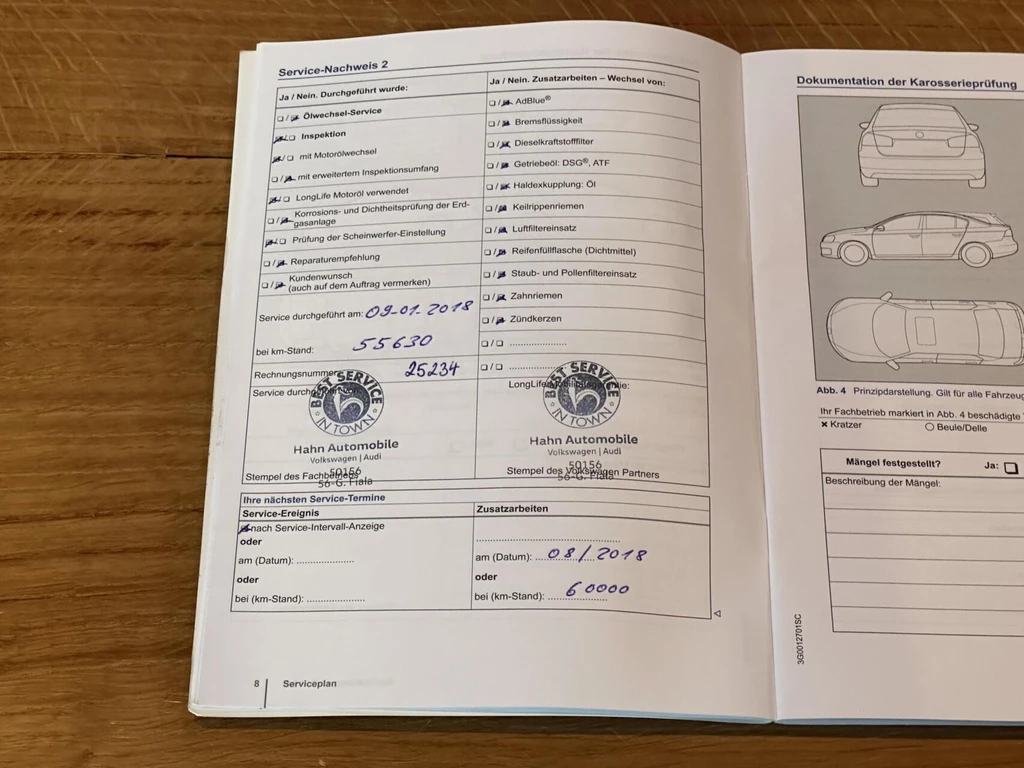 Service-Nachweis 2
Ja / Nein. Durchgeführt wurde:
Ölwechsel-Service
Inspektion
mit Motorölwechsel
mit erweitertem Inspektionsumfang
LongLife Motoröl verwendet
Korrosions- und Dichtheitsprüfung der Erd-
gasanlage
Prüfung der Scheinwerfer-Einstellung
Reparaturempfehlung
Kundenwunsch
(auch auf dem Auftrag vermerken)
Service durchgeführt am: 09-01-2018
bei km-Stand: 55630
Rechnungsnummer 25234
BEST SERVICE
IN TOWN
Hahn Automobile
Volkswagen | Audi
50156
Stempel des Fachbetriebs
56-G. Fiala
Ja / Nein. Zusatzarbeiten – Wechsel von:
AdBlue®
Bremsflüssigkeit
Dieselkraftstofffilter
Getriebeöl: DSG®, ATF
Haldexkupplung: Öl
Keilrippenriemen
Luftfiltereinsatz
Reifenfüllflasche (Dichtmittel)
Staub- und Pollenfiltereinsatz
Zahnriemen
Zündkerzen
BEST SERVICE
IN TOWN
Hahn Automobile
Volkswagen | Audi
50156
Stempel des Volkswagen Partners
56-G. Fiala
Ihre nächsten Service-Termine
Service-Ereignis
nach Service-Intervall-Anzeige
oder
am (Datum): ...................
oder
bei (km-Stand): ...................
Zusatzarbeiten
am (Datum): 08/2018
oder
bei (km-Stand): 60000
8 Serviceplan
Dokumentation der Karosserieprüfung
Abb. 4 Prinzipdarstellung. Gilt für alle Fahrzeug
Ihr Fachbetrieb markiert in Abb. 4 beschädigte
× Kratzer ○ Beule/Delle
Mängel festgestellt? Ja:
Beschreibung der Mängel:
3G0012701SC